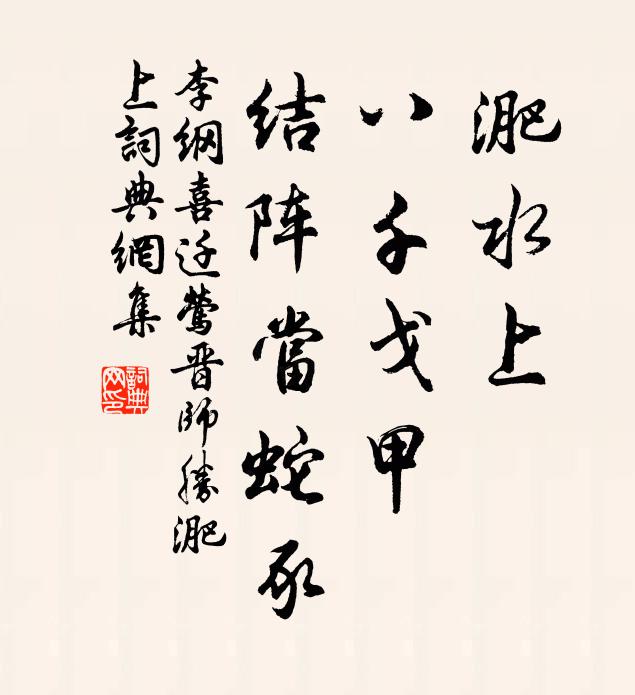 淝水上
八千戈甲
结阵當蛇豕
李纲喜迁莺晋師勝淝
上詞典網集
詞典网印